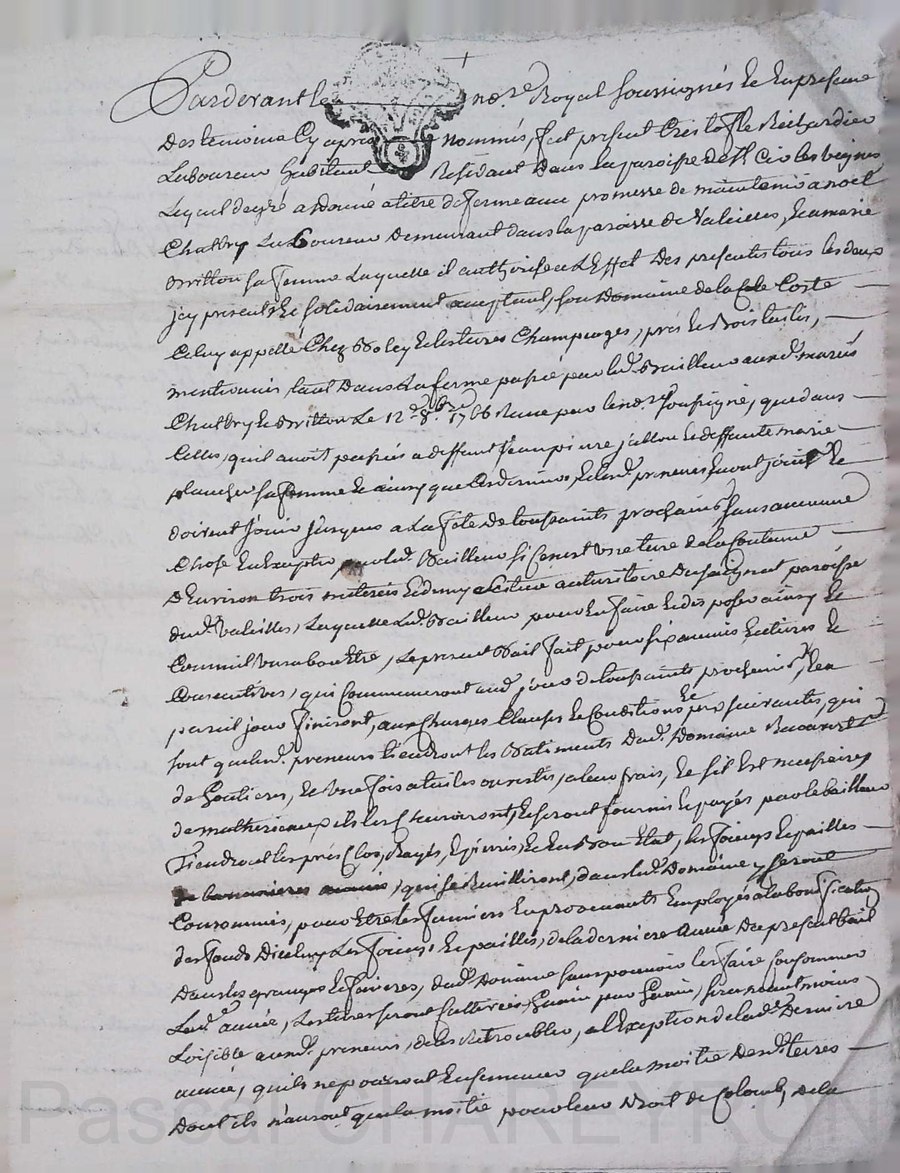 Pardevant le no.re Royal soussignés Et En presence
Des temoins Cy apres nommés, fut present Cristofle Richardier
Laboureur habitant Residant Dans la paroisse de st Cir les vignes
Lequel de gré a donné a titre de ferme avec promesse de maintenir a noel
Chattry Laboureur Demeurant dans la paroisse de Valeilles, Jeanmarie
sa femme Laquelle il authorise a L'Effet Des presentes tous les deux
jcy presents Et solidairement acceptant, son Domaine de la Coste
Celuy appellé Chez Et les terres Champeages, prés Et Bois taillis,
mentionnés, tant Dans La ferme passée par led. Bailleur auxd. mariés
Chattry Et Le 12e 8bre 1766 Recue par le no.re soussigné, que dans
Celles, qu'il avoit passées a deffunt Jean pierre jallon Et deffunte marie
plancher sa femme Et ainsy que Ces derniers, Et lesd. preneurs En ont jouit Et
doivent jouir jusques a La fete de toussaints prochains, sans aucune
Chose En Excepter par led. Bailleur si Ce n'est une terre de la Contenue
D'Environ trois Et demy au territoire Du paroisse
dud. Valeilles, Laquelle Led. Bailleur pour En faire Et disposer ainsy Et
Comme il verra bon Etre, Le present Bail fait pour six années Entieres Et
Consecutives, qui Commenceront aud. jour de toussaints prochains, Et a
pareil jour finiront, aux Charges Clauses Et Conditions suivantes, qui
sont que led. preneurs tiendront les Batiments Dud. Domaine
de Goutieres, Et une fois a tuiles ouvertes, a leur frais, Et s'il Est necessaires
de matheriaux ils les Et seront fournis Et payés par le bailleur
Tiendront les prés Clos, Rayés, Epierrés, Et En Bon Etat, Les foings Et pailles
, qui se Cuilliront, dans led. Domaine y seront
Consommés, pour Etre les fumiers En provenants Employés a la bonification
des fonds D'iceluy Les foings, Et pailles, de la derniere année Du present bail
Dans les granges Et fenieres, dud. Domaine sans pouvoir les faire Consommer
Lad. année, Les terres seront Grain pour Grain, sera neant moins
Loisible auxd. preneurs, de les Retroubler, a l'Exception de lad. Derniere
année, qu'ils ne pouront Ensemencer que la moitié Desd. terres
Dont ils n'auront que la moitié pour leur Droit de Colomb, de la
Pascal CHAREYRON